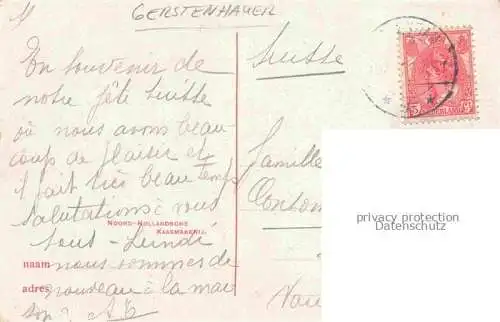 GERSTENHAUER
En souvenir de
notre fête suisse
où nous avons beau-
coup de plaisir et
il fait très beau temps
salutations à vous
tous - Lundi
nous sommes de
nouveau à la mai
son. A.
NOORD-HOLLANDSCHE
KAASMAKERIJ.
naam
adres
Suisse
Famille
Vau
5 NEDERLAND
privacy protection
Datenschutz